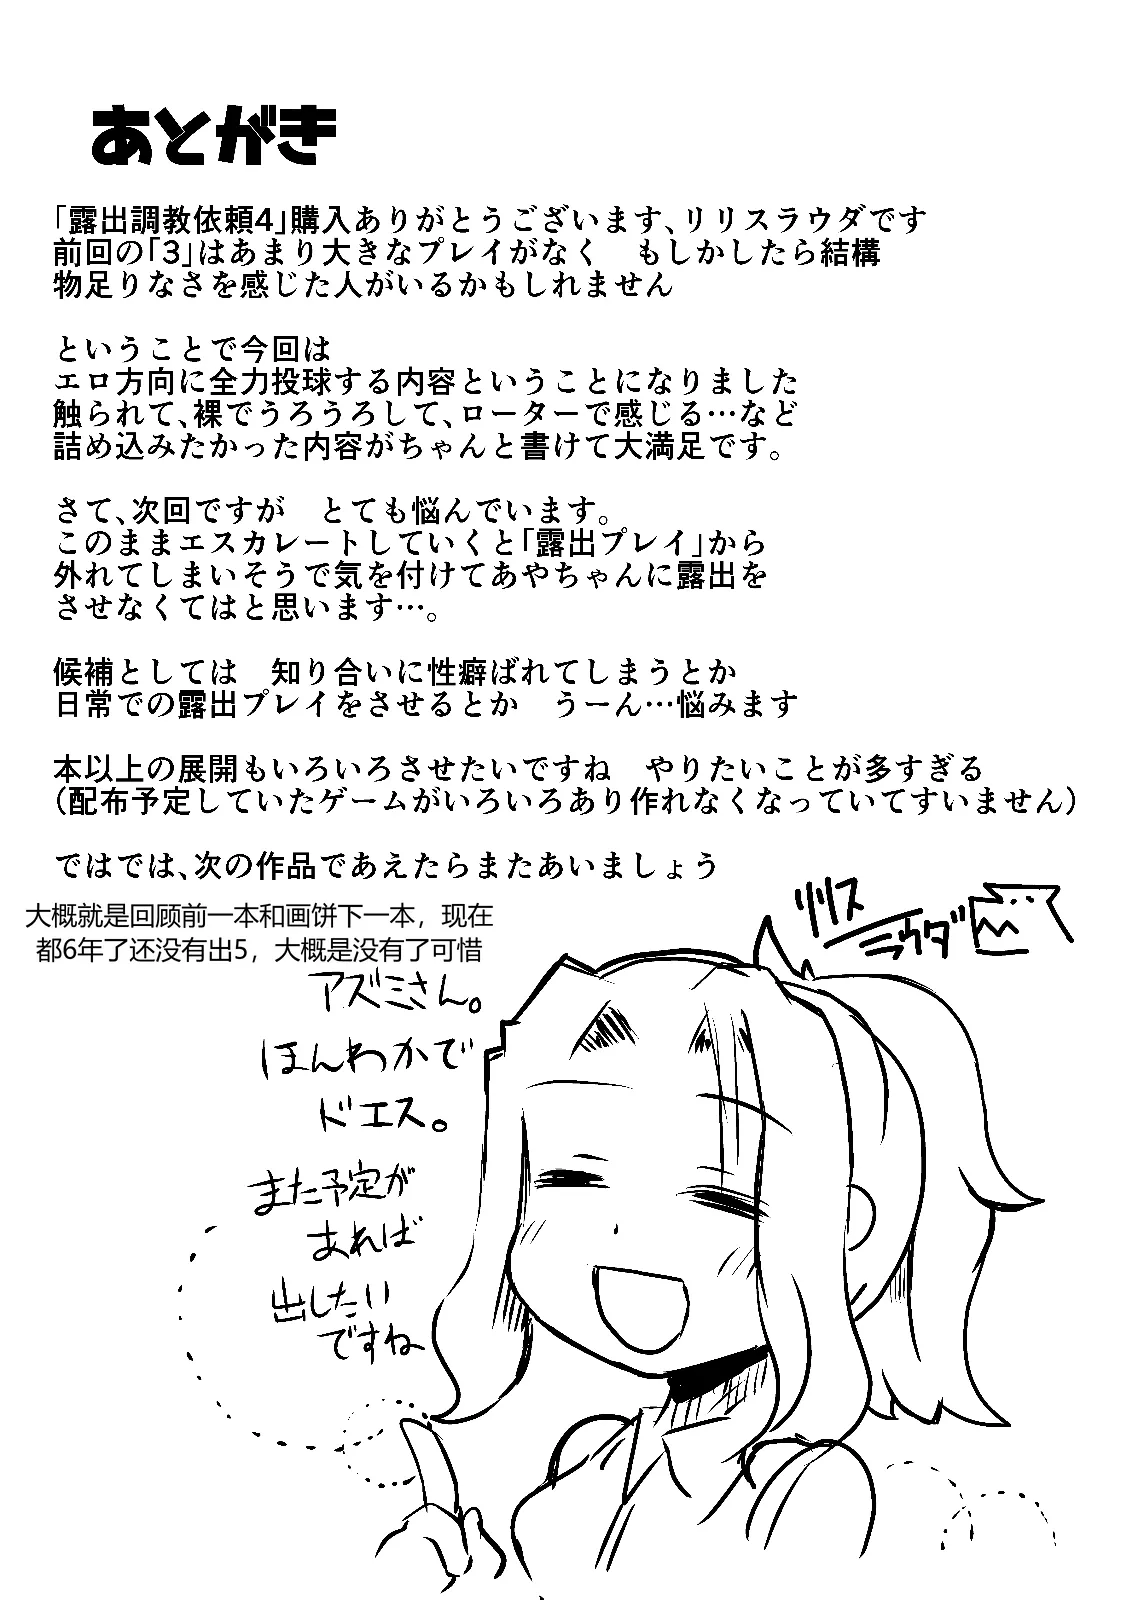 あとがき
「露出調教依頼4」購入ありがとうございます、リリスラウダです
前回の「3」はあまり大きなプレイがなく　もしかしたら結構
物足りなさを感じた人がいるかもしれません
ということで今回は
エロ方向に全力投球する内容ということになりました
触られて、裸でうろうろして、ローターで感じる…など
詰め込みたかった内容がちゃんと書けて大満足です。
さて、次回ですが　とても悩んでいます。
このままエスカレートしていくと「露出プレイ」から
外れてしまいそうで気を付けてあやちゃんに露出を
させなくてはと思います…。
候補としては　知り合いに性癖ばれてしまうとか
日常での露出プレイをさせるとか　うーん…悩みます
本以上の展開もいろいろさせたいですね　やりたいことが多すぎる
（配布予定していたゲームがいろいろあり作れなくなっていてすいません）
ではでは、次の作品であえたらまたあいましょう
リリス
ラウダ
大概就是回顾前一本和画饼下一本，现在
都6年了还没有出5，大概是没有了可惜
アズミさん。
ほんわかで
ドエス。
また予定が
あれば
出したい
ですね